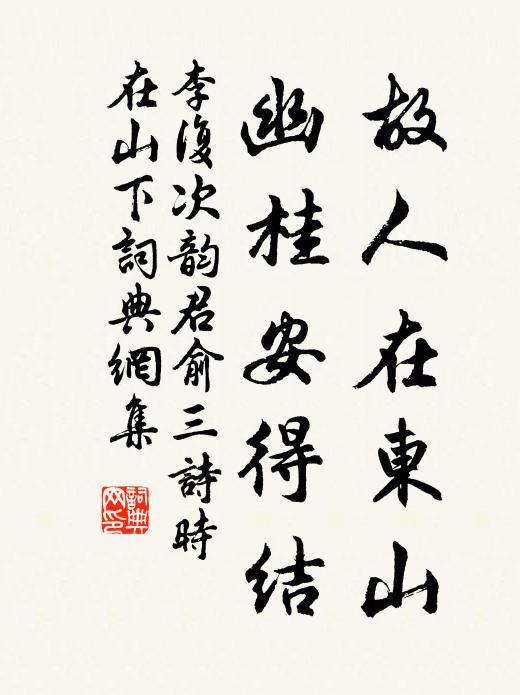 故人在東山
幽桂安得結
李復次韵君俞三詩時
在山下詞典網集
詞典网印